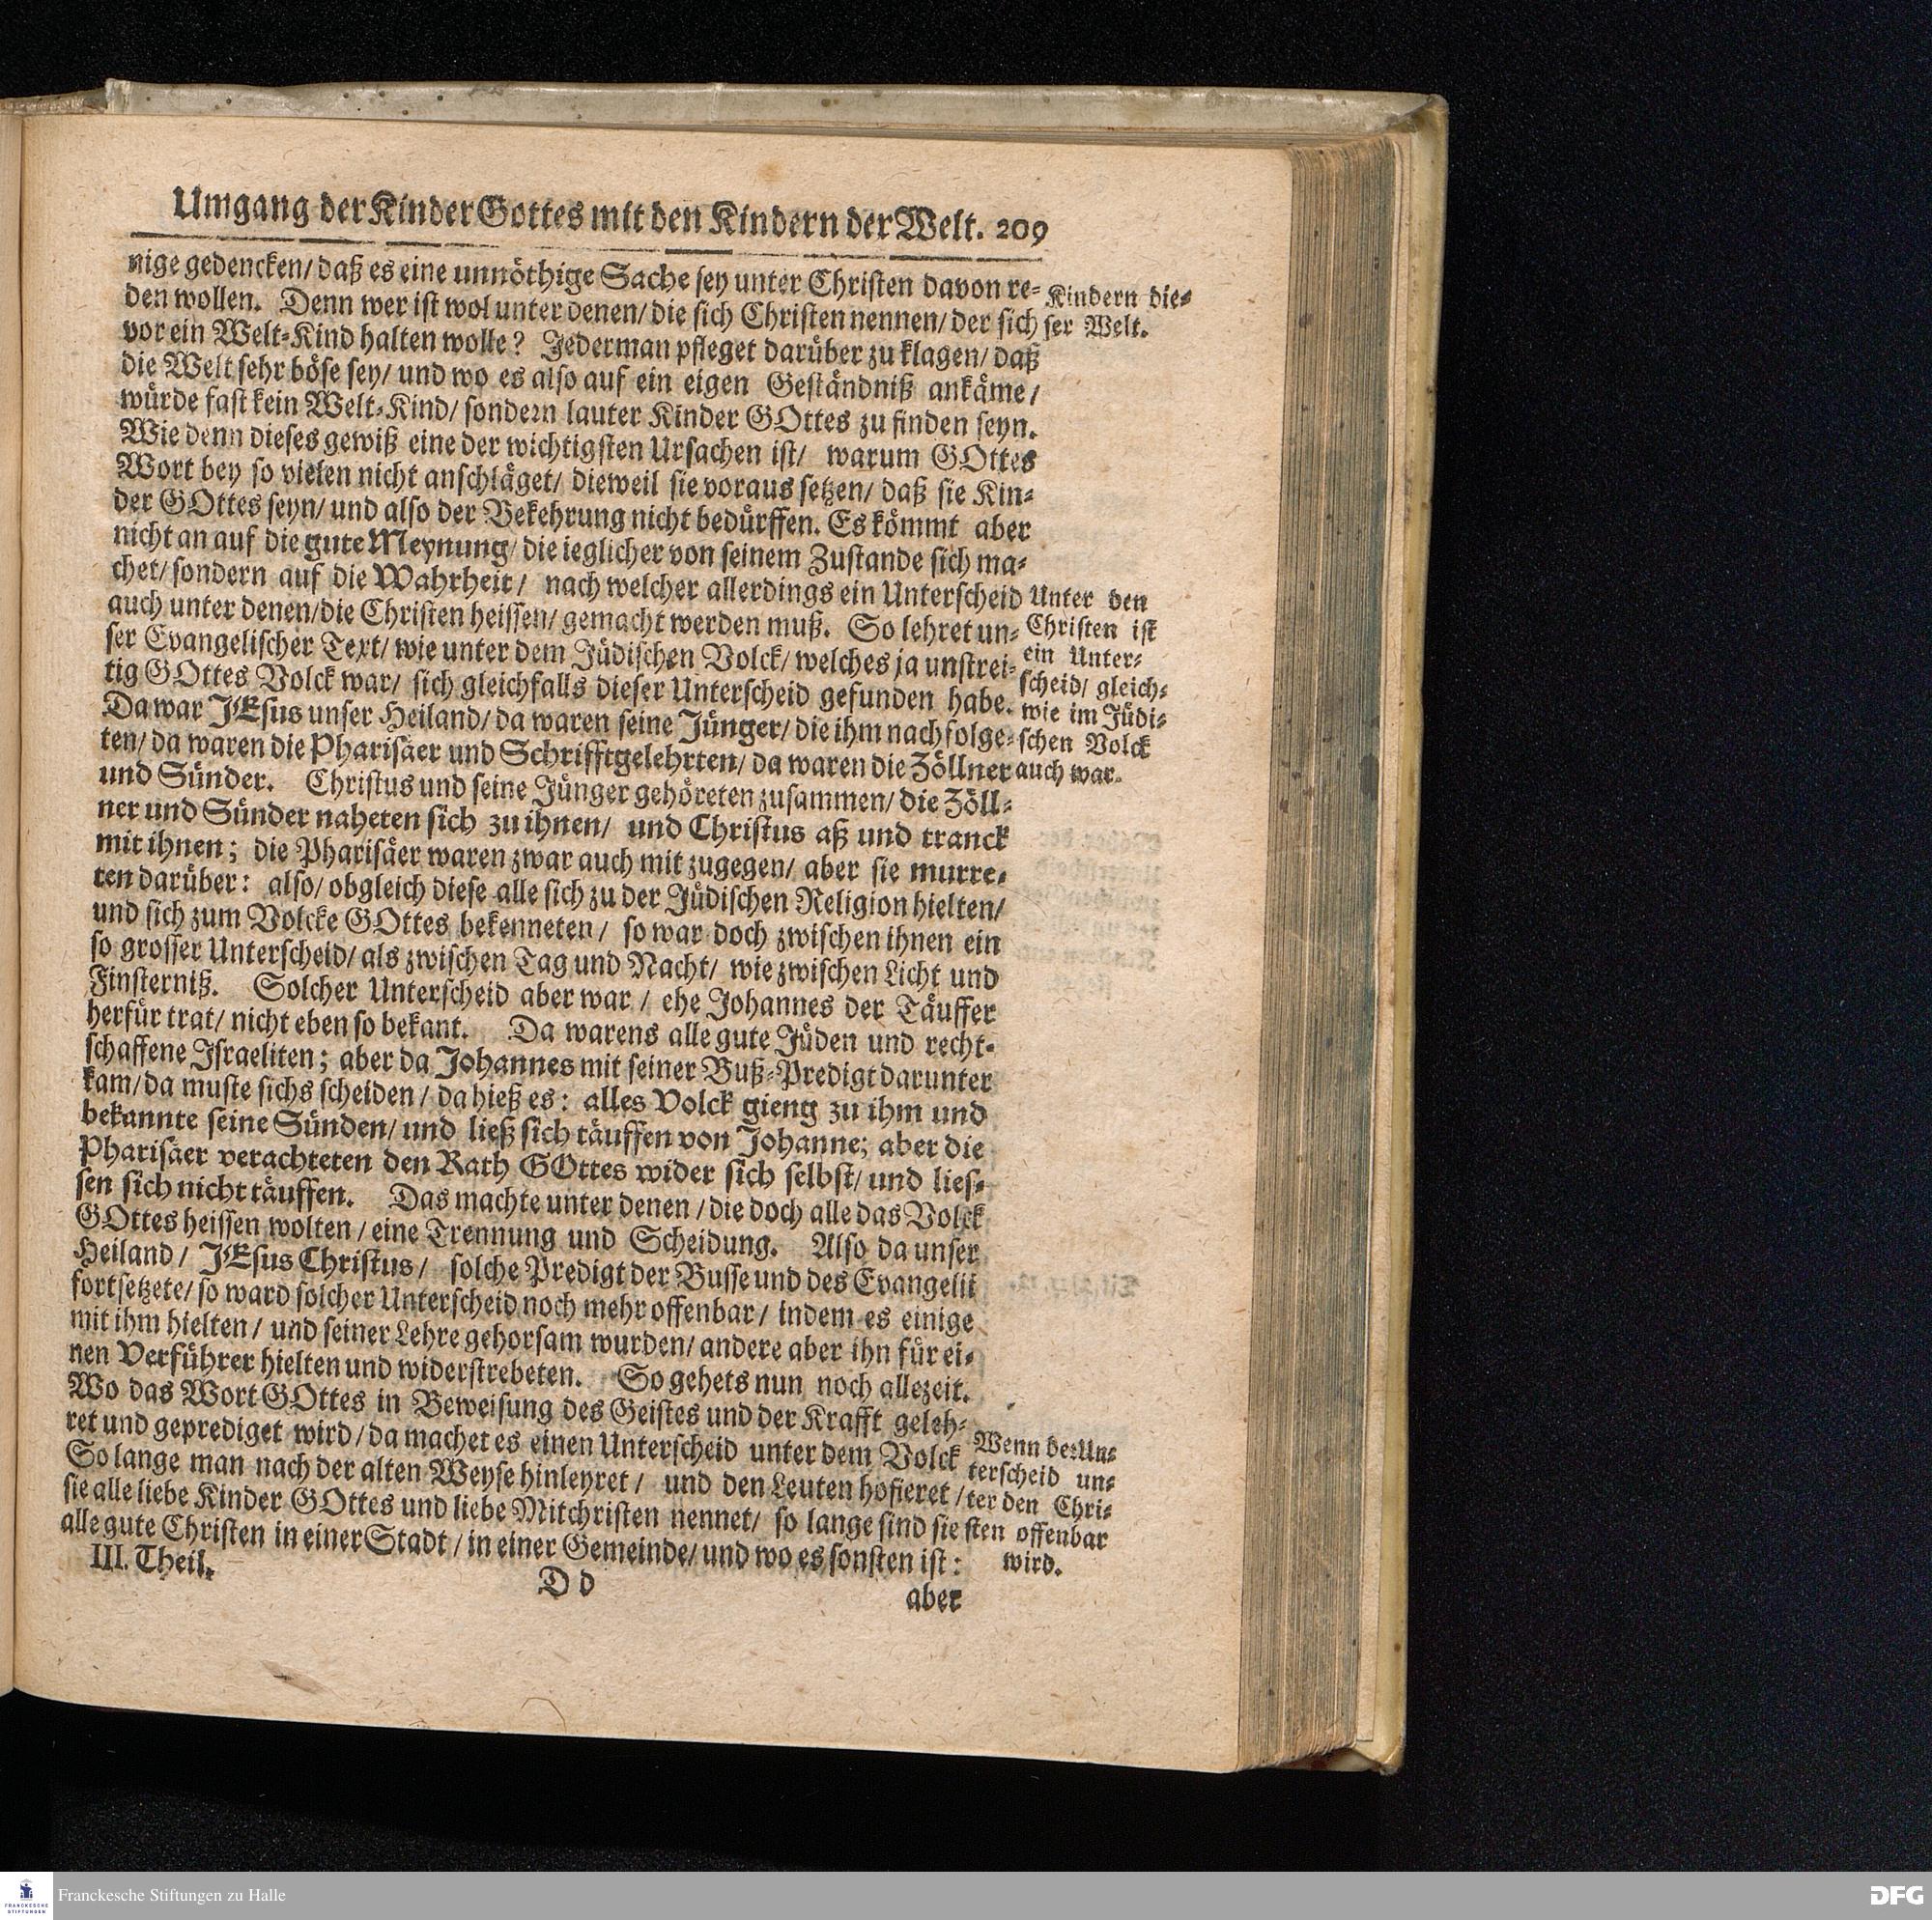 Umgang der Kinder Gottes mit den Kindern der Welt. 209
nige gedencken/ daß es eine unnöthige Sache sey unter Christen davon re-
den wollen. Denn wer ist wol unter denen/ die sich Christen nennen/ der sich
vor ein Welt-Kind halten wolle? Jederman pfleget darüber zu klagen/ daß
die Welt sehr böse sey/ und wo es also auf ein eigen Geständniß ankäme/
würde fast kein Welt-Kind/ sondern lauter Kinder GOttes zu finden seyn.
Wie denn dieses gewiß eine der wichtigsten Ursachen ist/ warum GOttes
Wort bey so vielen nicht anschläget/ dieweil sie voraus setzen/ daß sie Kin-
der GOttes seyn/ und also der Bekehrung nicht bedürffen. Es kömmt aber
nicht an auf die gute Meynung/ die ieglicher von seinem Zustande sich ma-
chet/ sondern auf die Wahrheit/ nach welcher allerdings ein Unterscheid
auch unter denen/die Christen heissen/ gemacht werden muß. So lehret un-
ser Evangelischer Text/ wie unter dem Jüdischen Volck/ welches ja unstrei-
tig GOttes Volck war/ sich gleichfalls dieser Unterscheid gefunden habe.
Da war JEsus unser Heiland/ da waren seine Jünger/ die ihm nachfolge-
ten/ da waren die Pharisäer und Schrifftgelehrten/ da waren die Zöllner
und Sünder. Christus und seine Jünger gehöreten zusammen/ die Zöll-
ner und Sünder naheten sich zu ihnen/ und Christus aß und tranck
mit ihnen; die Pharisäer waren zwar auch mit zugegen/ aber sie murre-
ten darüber: also/ obgleich diese alle sich zu der Jüdischen Religion hielten/
und sich zum Volcke GOttes bekenneten/ so war doch zwischen ihnen ein
so grosser Unterscheid/ als zwischen Tag und Nacht/ wie zwischen Licht und
Finsterniß. Solcher Unterscheid aber war/ ehe Johannes der Täuffer
herfür trat/ nicht eben so bekant. Da warens alle gute Jüden und recht-
schaffene Israeliten; aber da Johannes mit seiner Buß-Predigt darunter
kam/ da muste sichs scheiden/ da hieß es: alles Volck gieng zu ihm und
bekannte seine Sünden/ und ließ sich täuffen von Johanne; aber die
Pharisäer verachteten den Rath GOttes wider sich selbst/ und lies-
sen sich nicht täuffen. Das machte unter denen/ die doch alle das Volck
GOttes heissen wolten/ eine Trennung und Scheidung. Also da unser
Heiland/ JEsus Christus/ solche Predigt der Busse und des Evangelii
fortsetzete/ so ward solcher Unterscheid noch mehr offenbar/ indem es einige
mit ihm hielten/ und seiner Lehre gehorsam wurden/ andere aber ihn für ei-
nen Verführer hielten und widerstrebeten. So gehets nun noch allezeit.
Wo das Wort GOttes in Beweisung des Geistes und der Krafft geleh-
ret und geprediget wird/ da machet es einen Unterscheid unter dem Volck
So lange man nach der alten Weyse hinleyret/ und den Leuten hofieret/
sie alle liebe Kinder GOttes und liebe Mitchristen nennet/ so lange sind sie
alle gute Christen in einer Stadt/ in einer Gemeinde/ und wo es sonsten ist:
III. Theil.
D d
aber
Kindern die-
ser Welt.
Unter den
Christen ist
ein Unter-
scheid/ gleich-
wie im Jüdi-
schen Volck
auch war.
Wenn der Un-
terscheid un-
ter den Chri-
sten offenbar
wird.
FRANCKESCHE STIFTUNGEN
Franckesche Stiftungen zu Halle
DFG